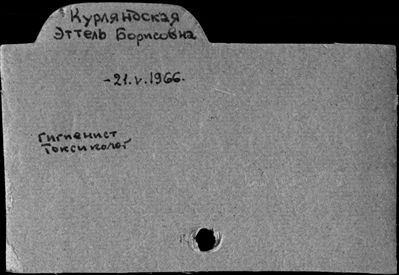 Курляндская
Эттель Борисовна
- 21.V.1966.
Гигиенист
Токсиколог